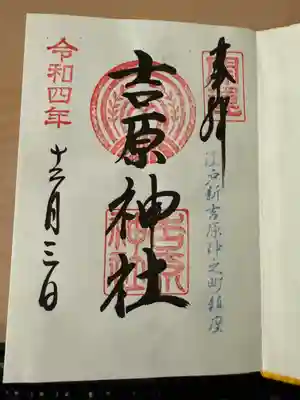 奉拝
江戸新吉原仲之町鎮座
吉原神社
令和四年
十二月三日
吉原神社